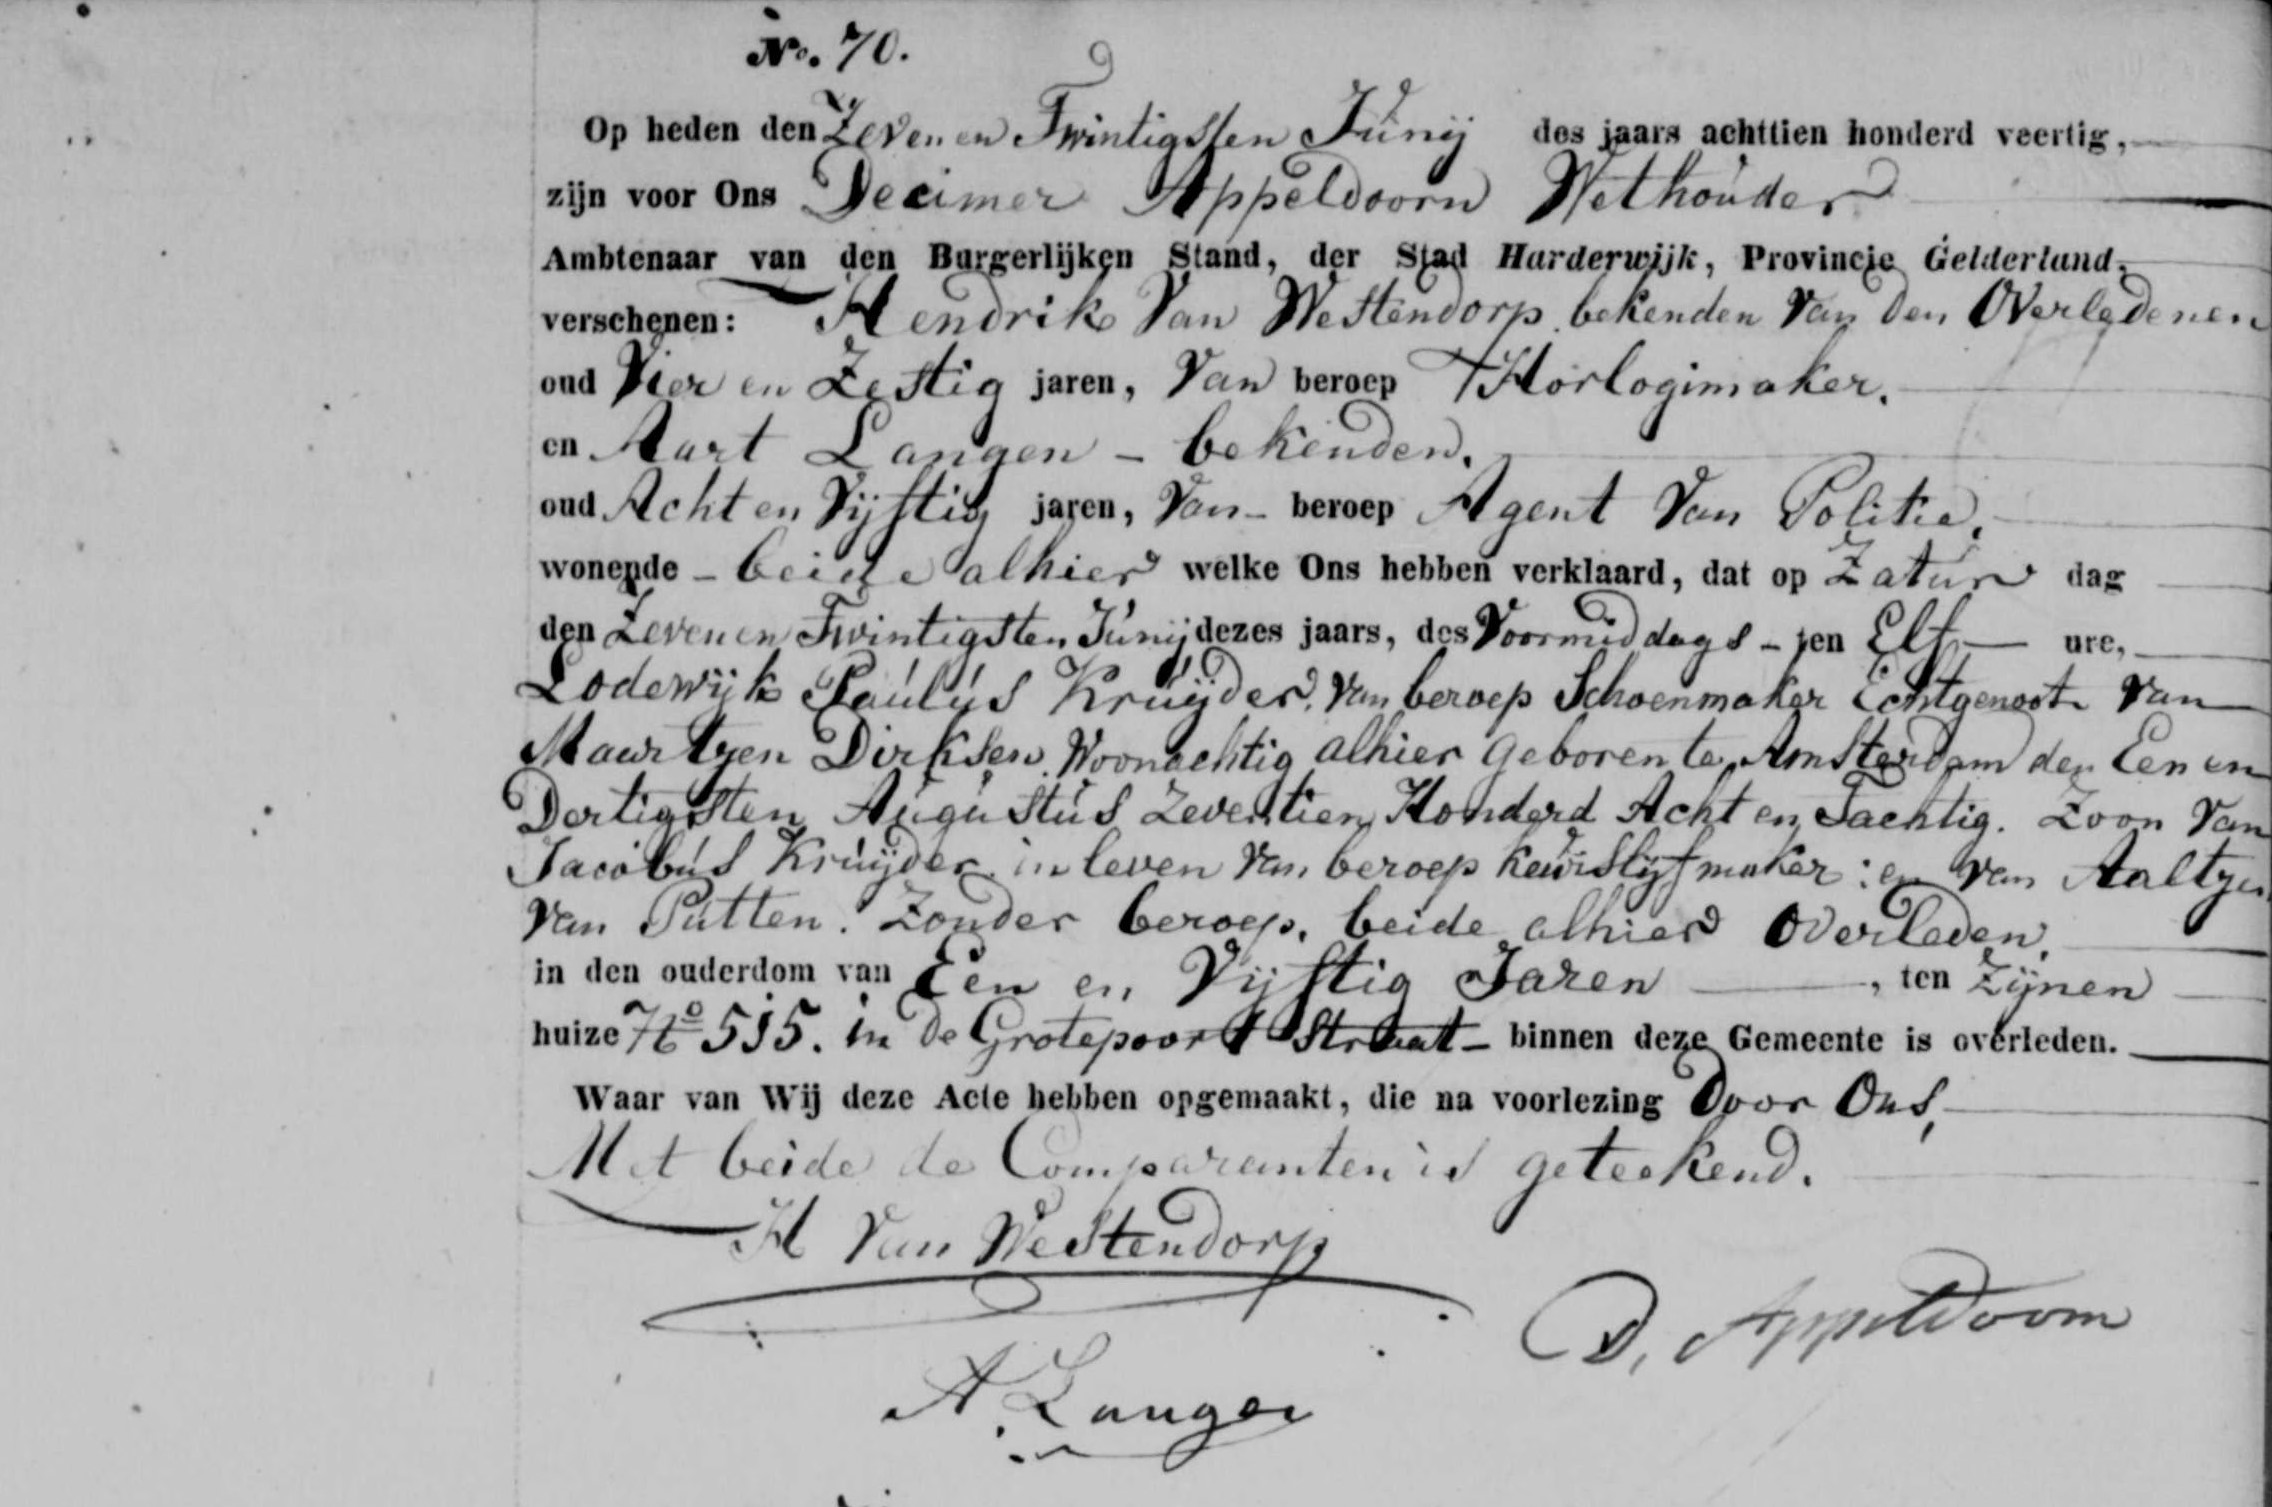 No. 70.
Op heden den Zeven en Twintigsten Junij des jaars achttien honderd veertig,
zijn voor Ons Decimer Appeldoorn Wethouder
Ambtenaar van den Burgerlijken Stand, der Stad Harderwijk, Provincie Gelderland,
verschenen: Hendrik Van Westendorp bekenden Van den Overledenen
oud Vier en Zestig jaren, Van beroep Horlogimaker.
en Aart Langen - bekenden.
oud Acht en Vijftig jaren, Van - beroep Agent Van Politie.
wonende - beide alhier welke Ons hebben verklaard, dat op Zatur dag
den Zeven en Twintigsten Junij dezes jaars, des Voormiddags - ten Elf ure,
Lodewijk Paulus Kruijder, Van beroep Schoenmaker Echtgenoot Van
Maartjen Dirksen, Woonachtig alhier geboren te Amsterdam den Een en
Dertigsten Augustus Zeventien Honderd Acht en Tachtig. Zoon Van
Jacobus Kruijder in leven Van beroep keurslijfmaker: en Van Aaltjen
Van Putten. Zonder beroep, beide alhier Overleden,
in den ouderdom van Een en Vijftig Jaren, ten Zijnen
huize No 515. in de Grotepoort Straat - binnen deze Gemeente is overleden.
Waar van Wij deze Acte hebben opgemaakt, die na voorlezing Door Ons,
Met beide de Comparanten is geteekend.
H Van Westendorp
D. Appeldoorn
A. Langen